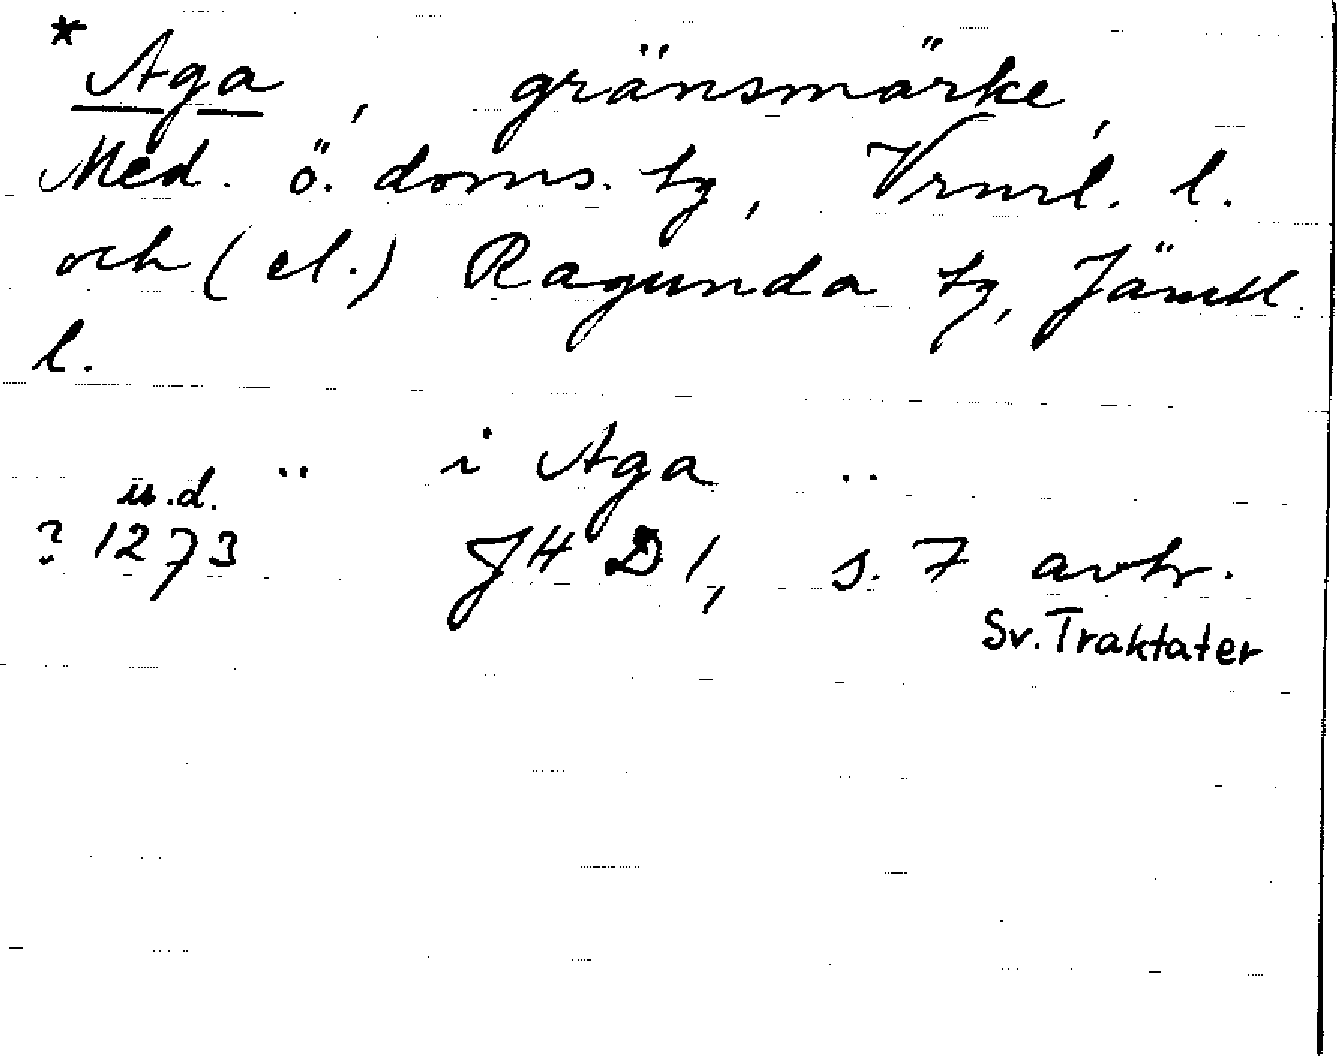 * Aga, gränsmärke,
Med. ö. doms. tg, Vrnrl. l.
och (el.) Ragunda tg, Jämtl.
l.
¨ i Aga ..
u.d.
? 1273 JHD 1, s. 7 avtr.
Sv. Traktater